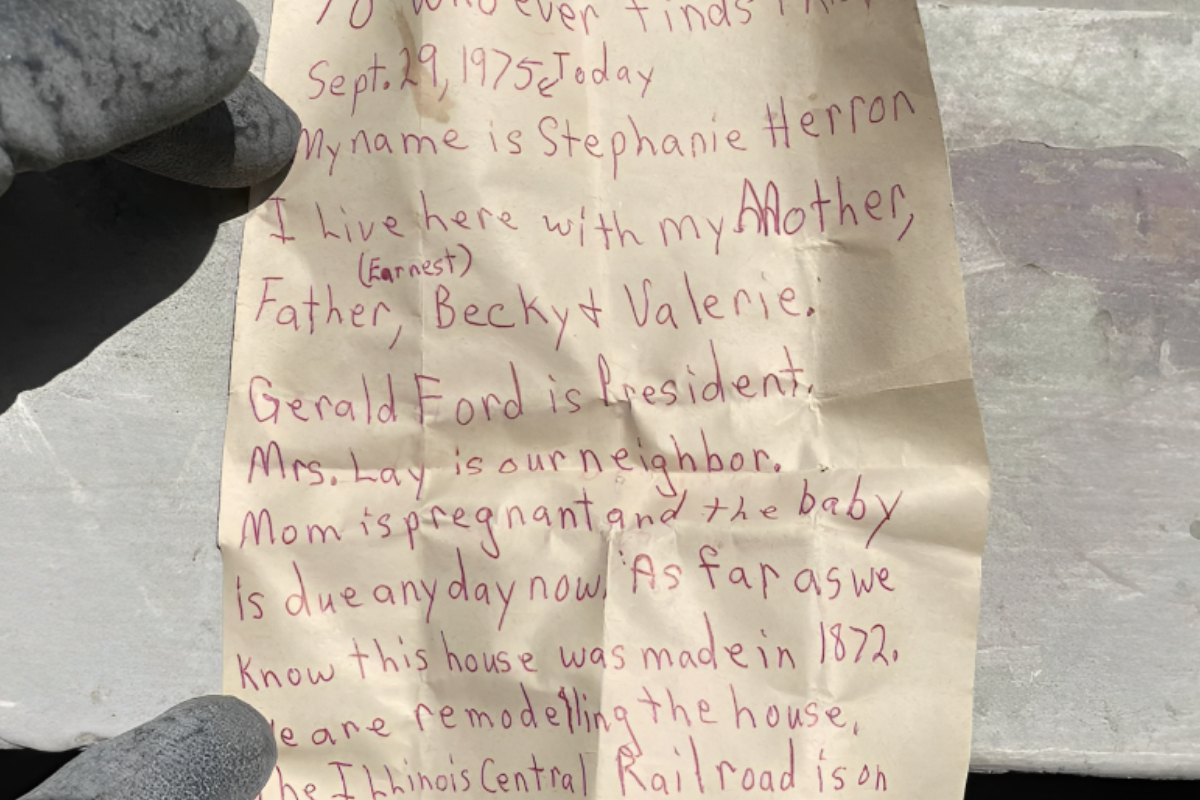 To whoever finds this
Sept. 29, 1975, Today
My name is Stephanie Herron
I Live here with my Mother,
(Earnest)
Father, Becky & Valerie.
Gerald Ford is President.
Mrs. Lay is our neighbor.
Mom is pregnant and the baby
is due any day now. As far as we
Know this house was made in 1872.
We are remodelling the house.
The Illinois Central Railroad is on